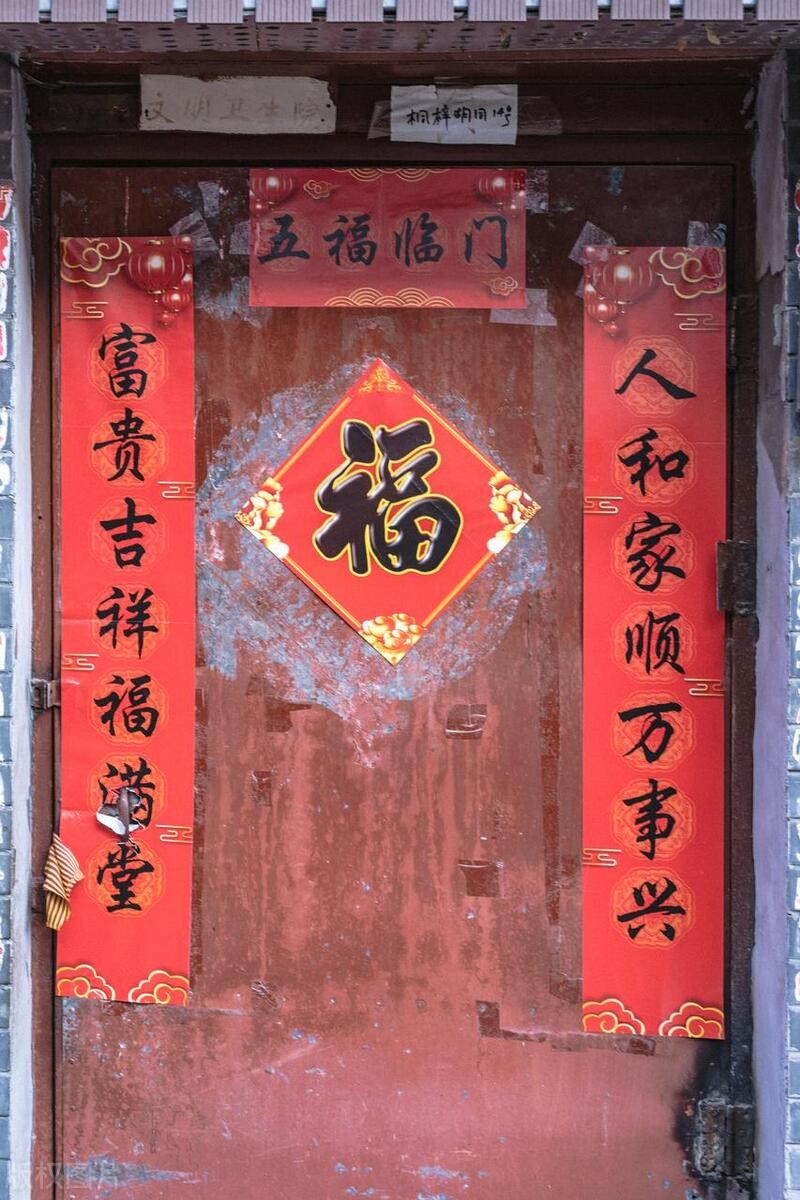 文明卫生院
桐梓胡同14号
五福临门
人和家顺万事兴
富贵吉祥福满堂
福
版权图片